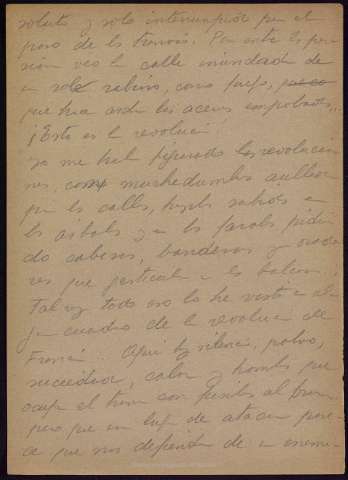 soluto y solo interrumpido por el
paso de los tranvías. Por entre las per
sianas veo la calle inundada de
un sol rabioso, como fuego,
que hace arder las aceras
¡Esto es la revolución!
Yo me había figurado las revolucio
nes, como muchedumbres aullan
por las calles, subidos a
los árboles y a los faroles pidien
do cabezas, banderas y orado
res que gesticulan en los balcones.
Tal vez todo eso lo he visto en al
gún cuadro de la revolución de
Francia. Aquí hay silencio, polvo,
suciedad, calor y hombres que
ocupan el tranvía con fusiles al hombro
pero que en lugar de atacar pare
ce que nos defienden de un enemi